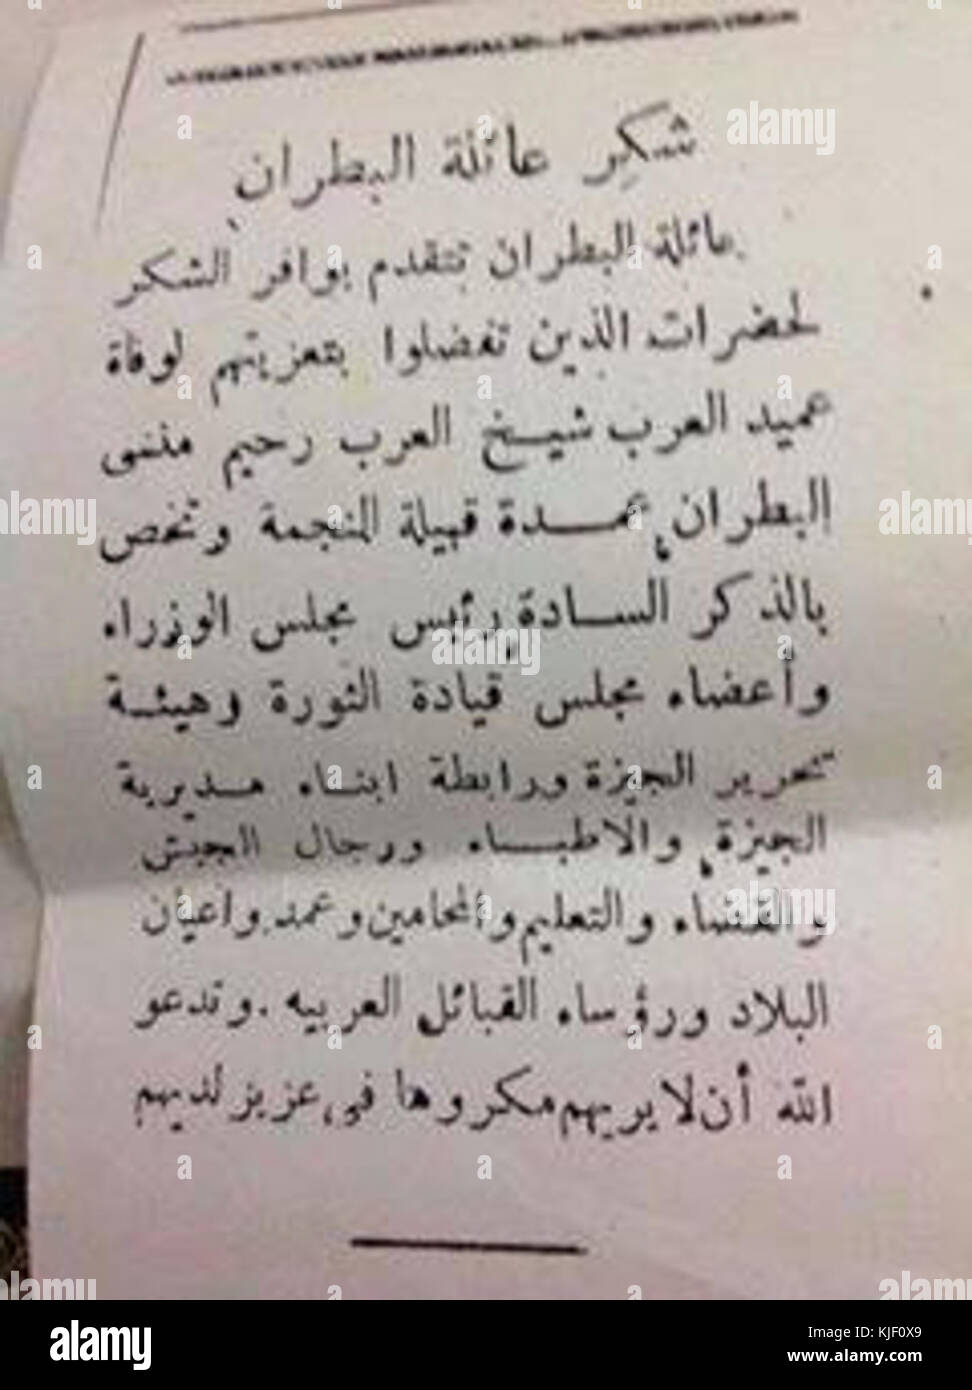 شكر عائلة البطران
عائلة البطران تتقدم بوافر الشكر
لحضرات الذين تفضلوا بتعزيتهم لوفاة
عميد العرب شيخ العرب رحيم منسى
البطران عمدة قبيلة المنجمة وتخص
بالذكر السادة رئيس مجلس الوزراء
وأعضاء مجلس قيادة الثورة وهيئة
تحرير الجيزة ورابطة ابناء مديرية
الجيزة والاطباء ورجال الجيش
والقضاء والتعليم والمحامين وعمد واعيان
البلاد ورؤساء القبائل العربيه . وتدعو
الله أن لا يريهم مكروها في عزيز لديهم
alamy
a
alamy stock photo
KJF0X9
www.alamy.com